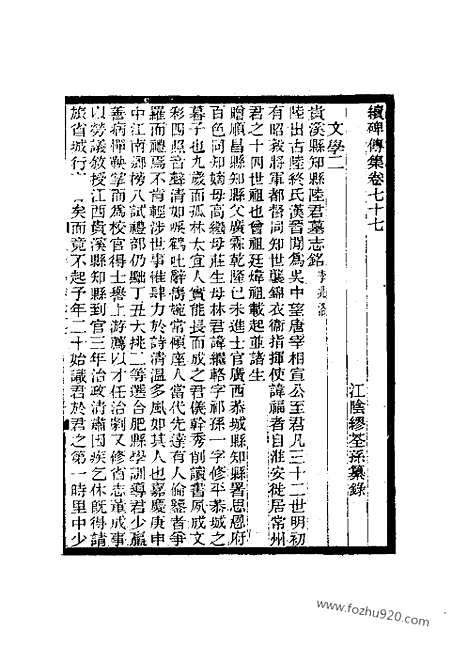 續碑傳集卷七十七
江陰繆荃孫纂錄
文學二
貴溪縣知縣陸君墓志銘 李兆洛
陸出古陸終氏漢晉閒爲吳中望唐宰相宣公至君凡三十二世明初
有昭毅將軍都督同知世襲錦衣衞指揮使諱福者自淮安徙居常州
君之十四世祖也曾祖廷煒祖載起並諸生
贈順昌縣知縣父廣霖乾隆己未進士官廣西恭城縣知縣署思恩府
百色同知嫡母高繼母莊生母林君諱繼輅字祁孫一字修平恭城之
暮子也九歲而孤林太宜人實能長而成之君儀幹秀削讀書夙成文
彩四照音聲清如唳鶴吐辭儁婉常傾座人當代先達有人倫鑒者爭
羅而禮焉不肯輕涉世事惟肆力於詩清溫多風如其人也嘉慶庚申
中江南鄉榜八試禮部仍黜丁丑大挑二等選合肥縣學訓導君少羸
善病憚鞅掌而爲校官得士譽上游薦以才任治劇又修省志董成事
以勞議敘授江西貴溪縣知縣到官三年治政清肅因疾乞休旣得請
旅省城行 矣而竟不起子年二十始識君於君之第一時里中少
www.fozhu920.com